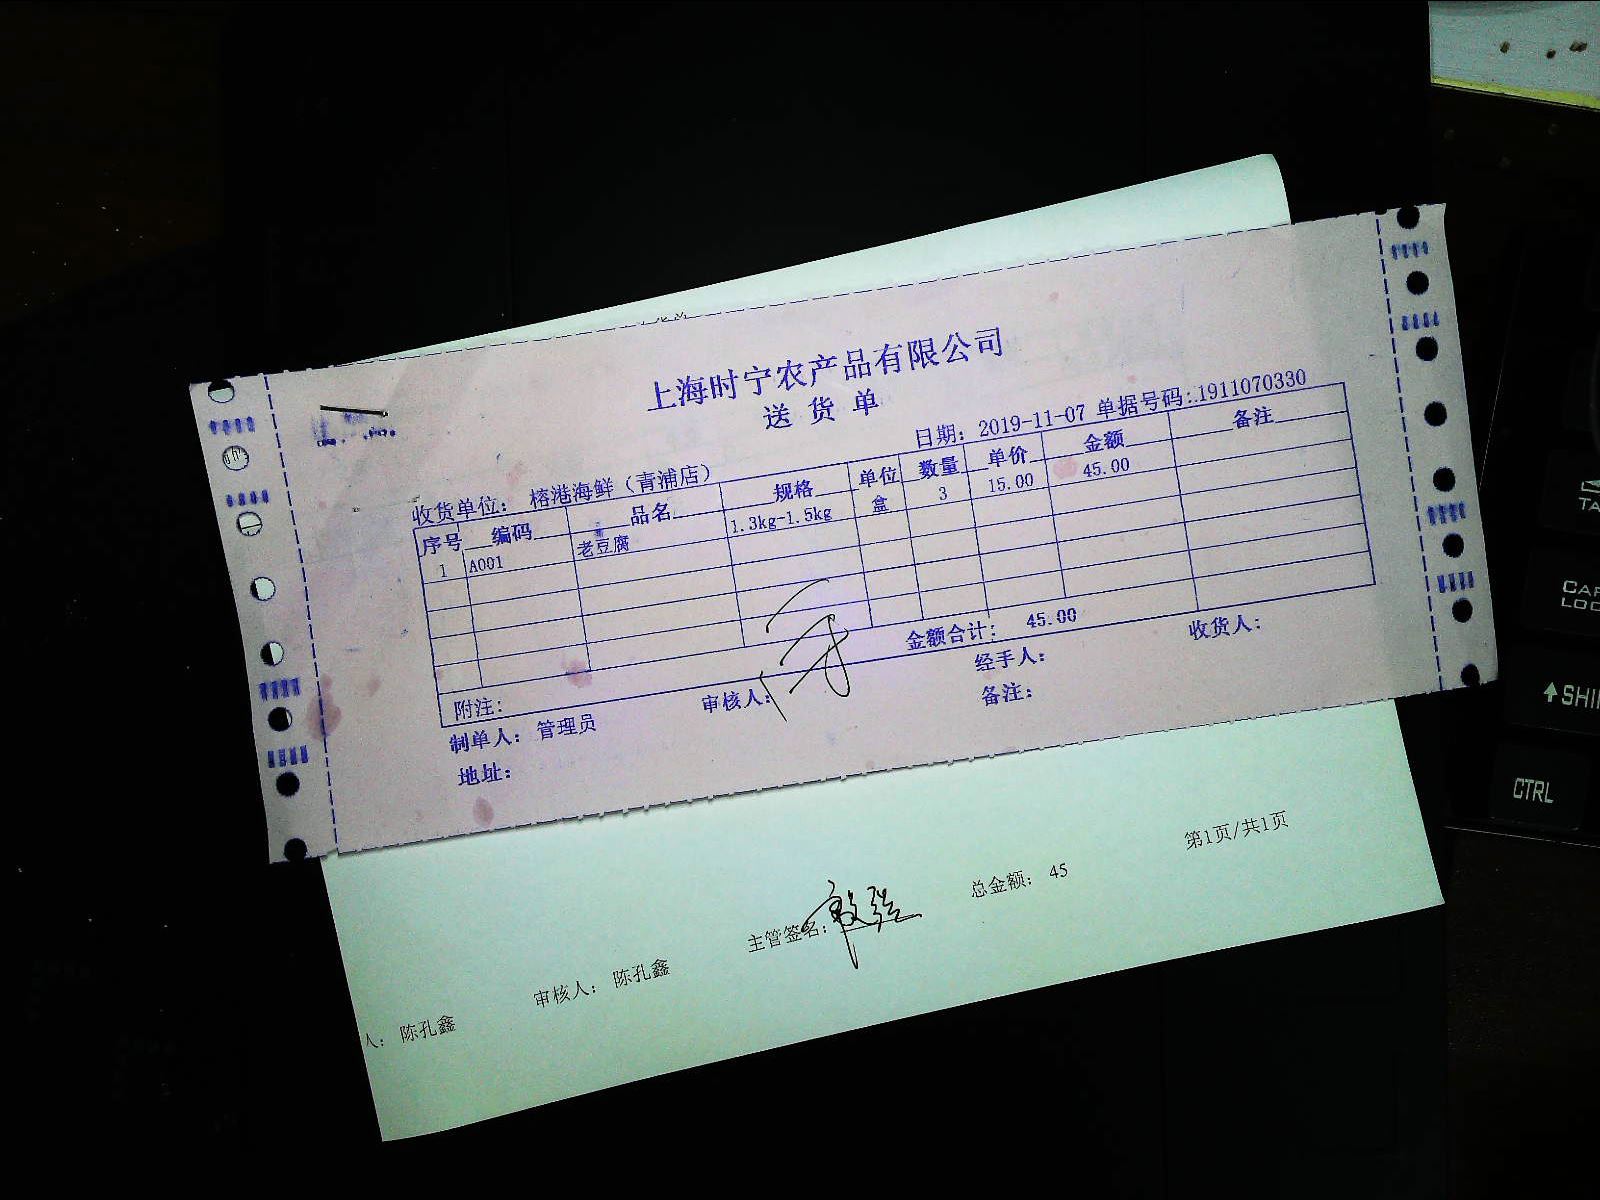 上海时宁农产品有限公司
送货单
日期: 2019-11-07 单据号码:.1911070330
收货单位: 榕港海鲜（青浦店）
序号 编码 品名 规格 单位 数量 单价 金额 备注
1 A001 老豆腐 1.3kg-1.5kg 盒 3 15.00 45.00
附注: 金额合计: 45.00
制单人: 管理员 审核人: 经手人: 收货人:
地址: 备注:
人: 陈孔鑫 审核人: 陈孔鑫 主管签名: 总金额: 45 第1页/共1页
CTRL